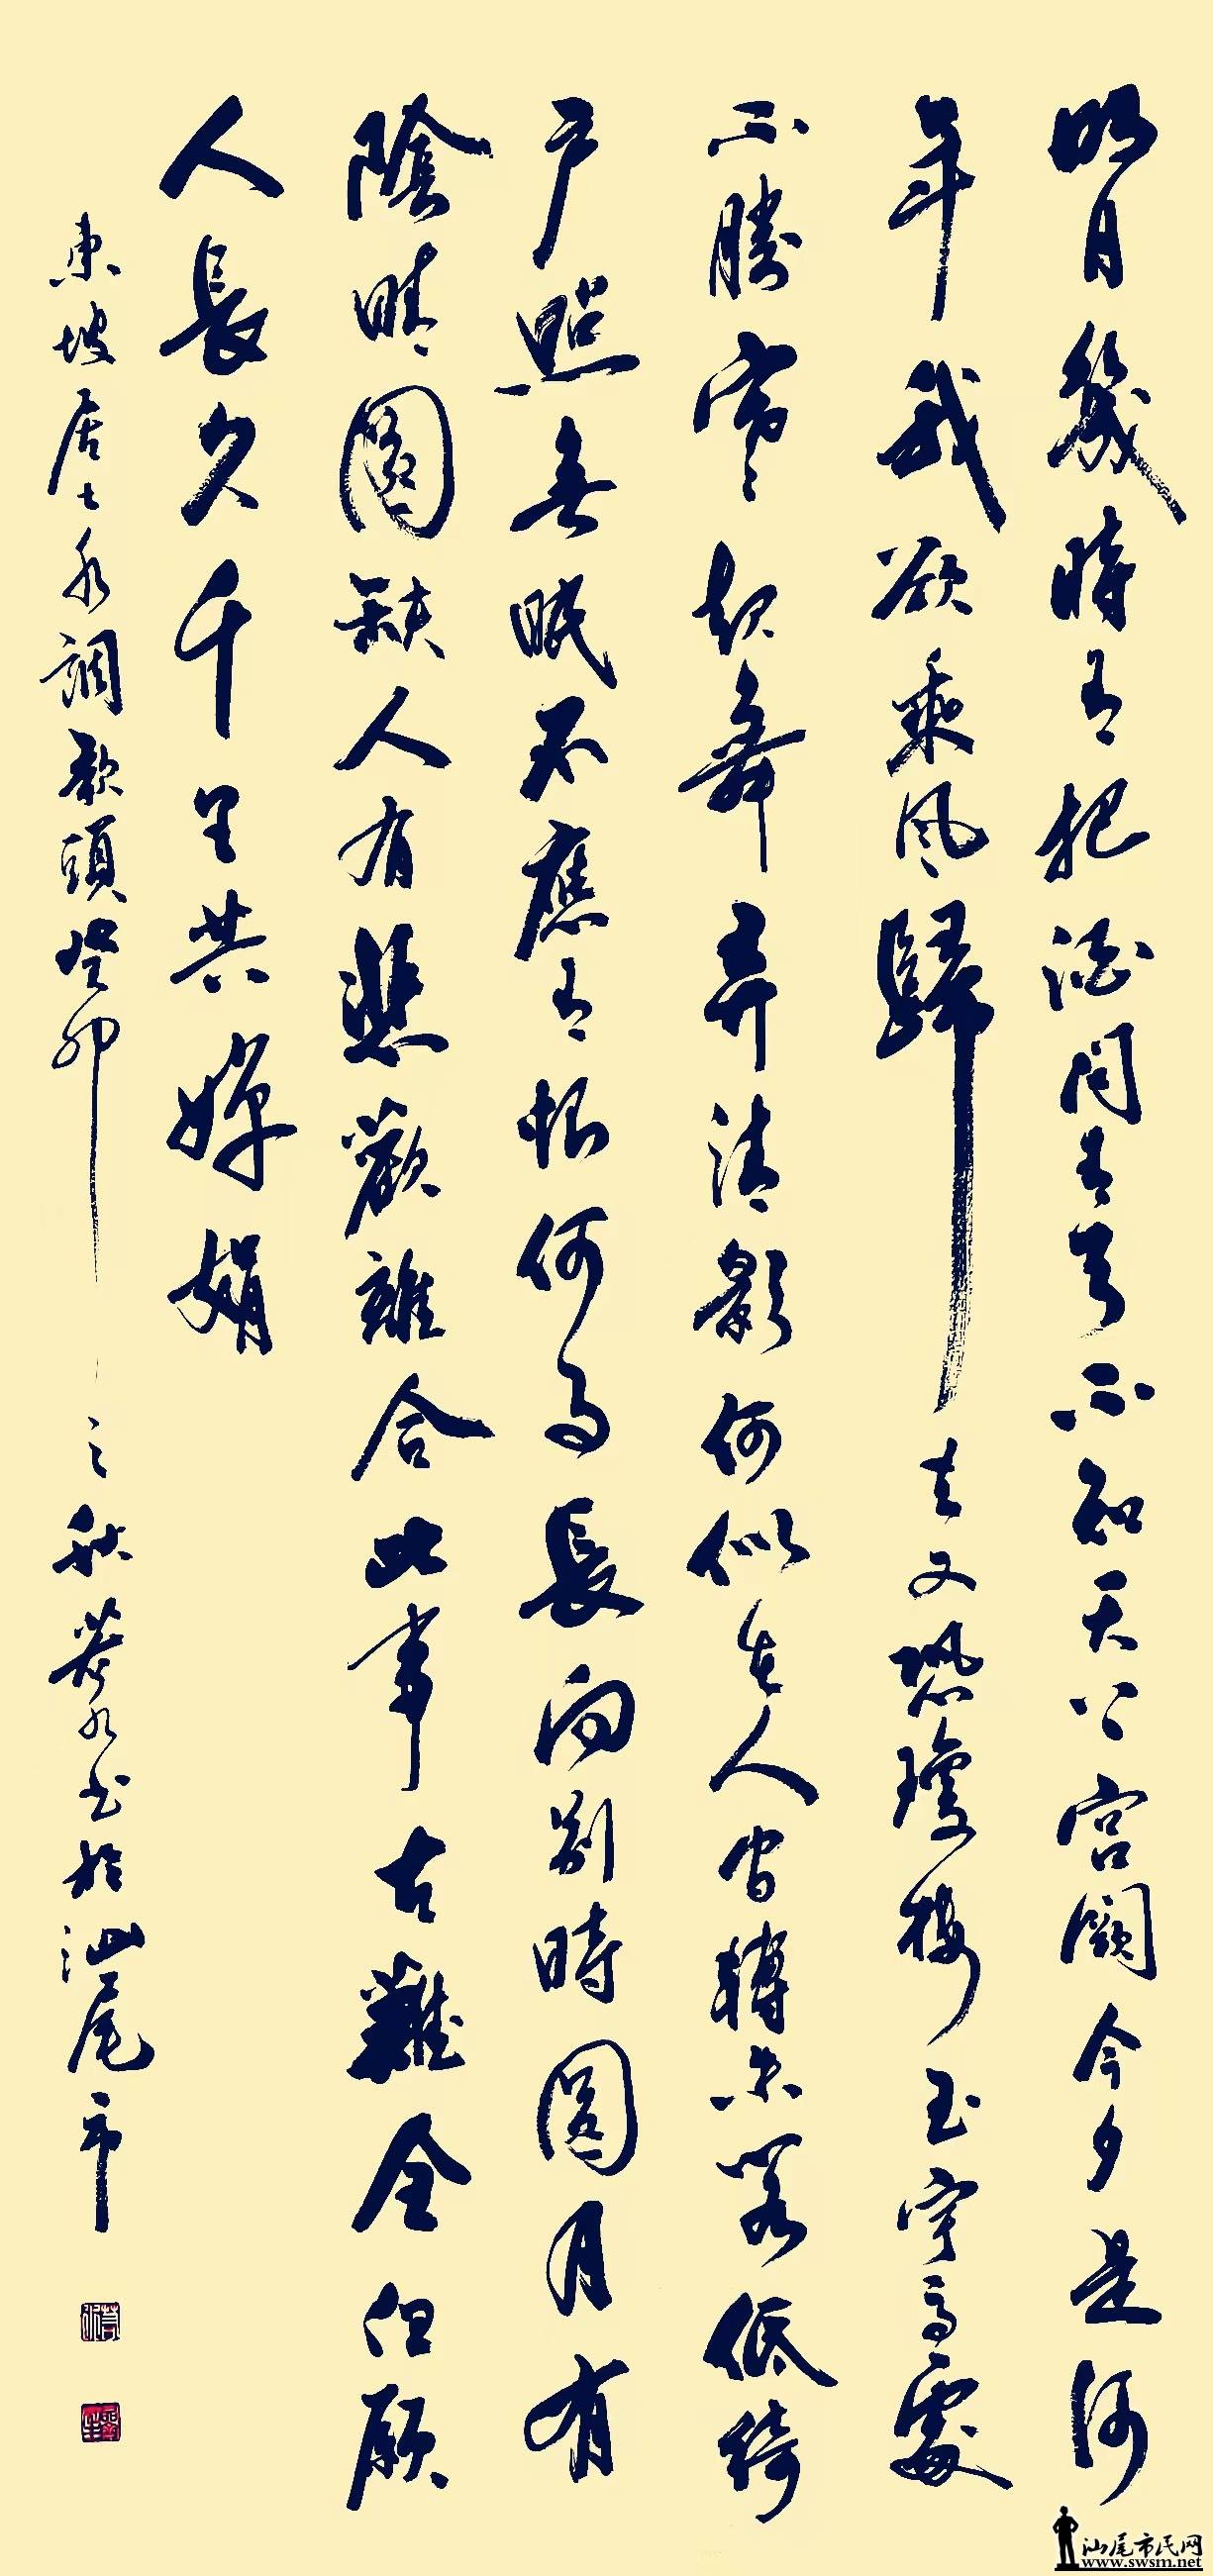 明月幾時有把酒問青天不知天上宮闕今夕是何
年我欲乘風歸去又恐瓊樓玉宇高處
不勝寒起舞弄清影何似在人間轉朱閣低綺
戶照無眠不應有恨何事長向別時圓月有
陰晴圓缺人有悲歡離合此事古難全但願
人長久千里共嬋娟
東坡居士水調歌頭癸卯之秋水書於汕尾市
汕尾市民网
www.swsm.net